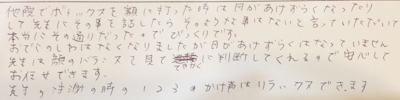 他院でボトックスを額に打った時は目があけずらくなったりして
先生にその事を話したら そのような事はないと言っていただいて
本当にその通りだったので びっくりです。
おでこのしわはなくなりましたが目があけずらくはなっていません
先生は顔のバランスを見て できかくに判断してくれるので安心して
おまかせできます。
先生の注射の時の123のかけ声はリラックスできます